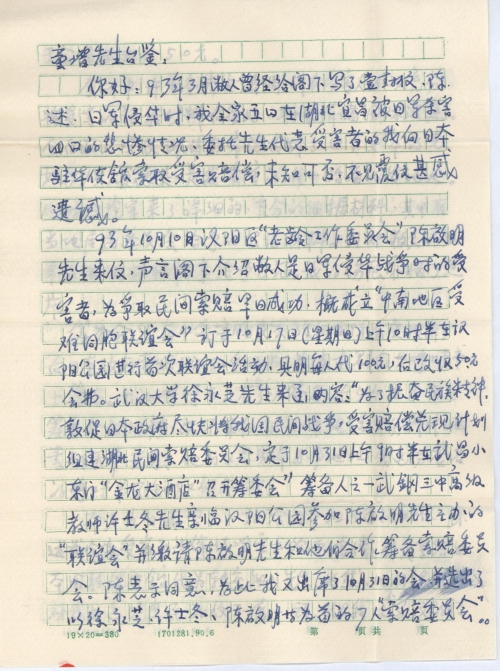 童增先生台鉴:
你好:93年3月敝人曾经给阁下写了壹封信,陈
述:日军侵华时,我全家五口在湖北宜昌被日军杀害
四口的悲惨情况,委托先生代表受害者的我向日本
驻华使馆索取受害赔偿,未知可否,不见覆信甚感
遗憾。
93年10月10日汉阳区“老龄工作委员会”陈啟明
先生来信,声言阁下介绍敝人是日军侵华战争时的受
害者,为争取民间索赔早日成功,概成立“中南地区受
难同胞联谊会”订于10月17日(星期日)上午10时半在汉
阳公园进行首次联谊会活动,具明每人代100元,后改收50元
会费。武汉大学徐永芝先生来函内容:“为了振奋民族精神,
敦促日本政府尽快将我国民间战争,受害赔偿兑现,计划
组建湖北民间索赔委员会,定于10月31日上午9时半在武昌小
东门“金龙大酒店”召开筹委会”筹备人之一武钢三中高级
教师许士冬先生亲临汉阳公园参加陈啟明先生主办的
“联谊会”并邀请陈啟明先生和他们合作,筹备索赔委员
会。陈表示同意,为此我又出席了10月31日的会,并选出了
以徐永芝、许士冬、陈啟明为首的7人“索赔委员会”。
19×20=380 1701281.90.6 第 页共 页